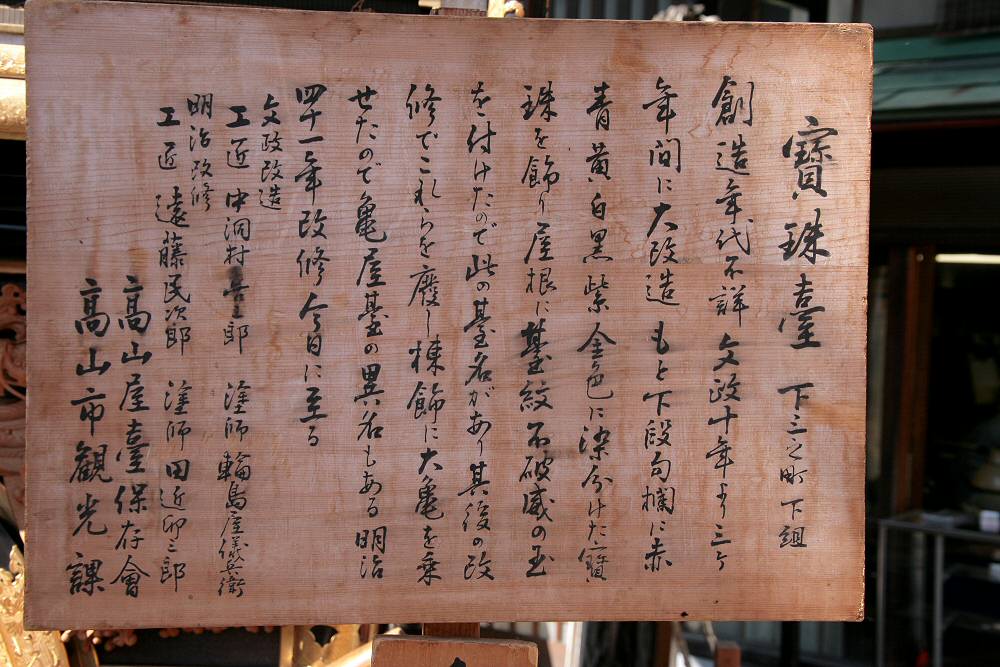 寶珠臺 下三之町下組
創造年代不詳 文政十年より三ヶ
年間に大改造 もと下段勾欄に赤
青黄白黒紫金色に染分けた寶
珠を飾り屋根に臺紋不破威の玉
を付けたので此の臺名があり其後の改
修でこれらを廃し棟飾に大亀を乗
せたので亀屋臺の異名もある 明治
四十一年改修今日に至る
文政改造
工匠 中洞村 郎 塗師 輪島屋儀兵衛
明治改修
工匠 遠藤民次郎 塗師 田近卯之郎
高山屋臺保存會
高山市観光課